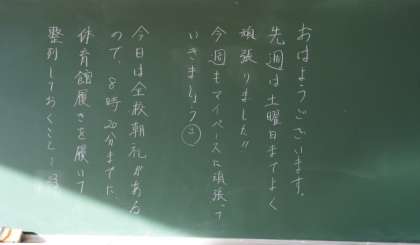 おはようございます。
先週は土曜日までよく
頑張りました!!
今週もマイペースに頑張って
いきましょう
今日は全校朝礼がある
ので、8時20分までに、
体育館履きを履いて
整列しておくこと!